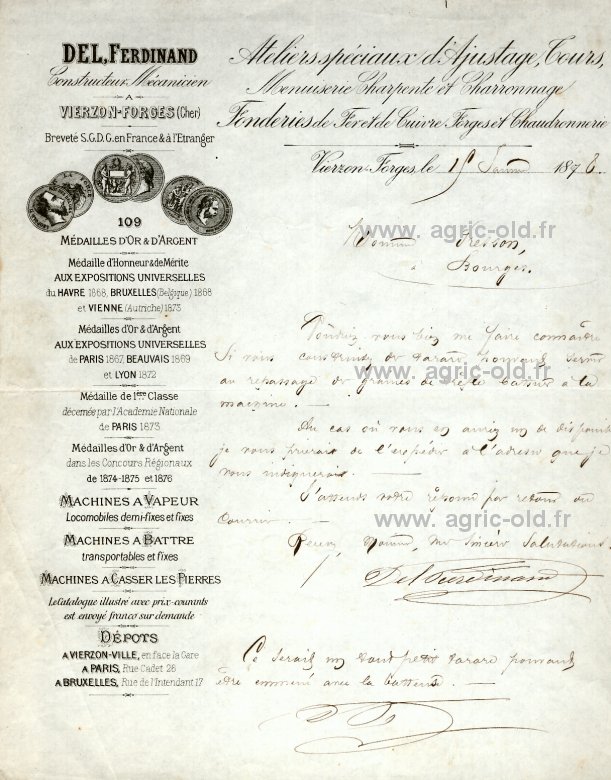 DEL, FERDINAND
Constructeur-Mécanicien
A
VIERZON-FORGES (Cher)
Breveté S.G.D.G. en France & à l'Etranger
109
MÉDAILLES D'OR & D'ARGENT
Médaille d'Honneur & de Mérite
AUX EXPOSITIONS UNIVERSELLES
du HAVRE 1868, BRUXELLES (Belgique) 1868
et VIENNE (Autriche) 1873
Médailles d'Or & d'Argent
AUX EXPOSITIONS UNIVERSELLES
de PARIS 1867, BEAUVAIS 1869
et LYON 1872
Médaille de 1ère Classe
décernée par l'Academie Nationale
de PARIS 1873
Médailles d'Or & d'Argent
dans les Concours Régionaux
de 1874-1875 et 1876
MACHINES A VAPEUR
Locomobiles demi-fixes et fixes
MACHINES A BATTRE
transportables et fixes
MACHINES A CASSER LES PIERRES
Le Catalogue illustré avec prix-courants
est envoyé franco sur demande
DÉPOTS
A VIERZON-VILLE, en face la Gare
A PARIS, Rue Cadet 26
A BRUXELLES, Rue de l'Intendant 17
Ateliers spéciaux d'Ajustage, Tours,
Menuiserie Charpente et Charronnage
Fonderies de Fer et de Cuivre Forges et Chaudronnerie
Vierzon-Forges, le 187
www. agric-old.fr
Monsieur
à Bourges.
Voudriez vous bien me faire connaître
Si vous construisez de tarare pouvant servir
www. agric-old.fr
au repassage de graines de trèfle battues à la
machine. —
Au cas où vous en auriez un de disponible
je vous prierais de l'expédier à l'adresse que je
vous indiquerais. —
J'attends votre réponse par retour du
www. agric-old.fr
Courrier. —
Recevez, Monsieur, mes sincères salutations.
Del Ferdinand
Ce serait un tout petit tarare pouvant
être emmené avec la batteuse. —